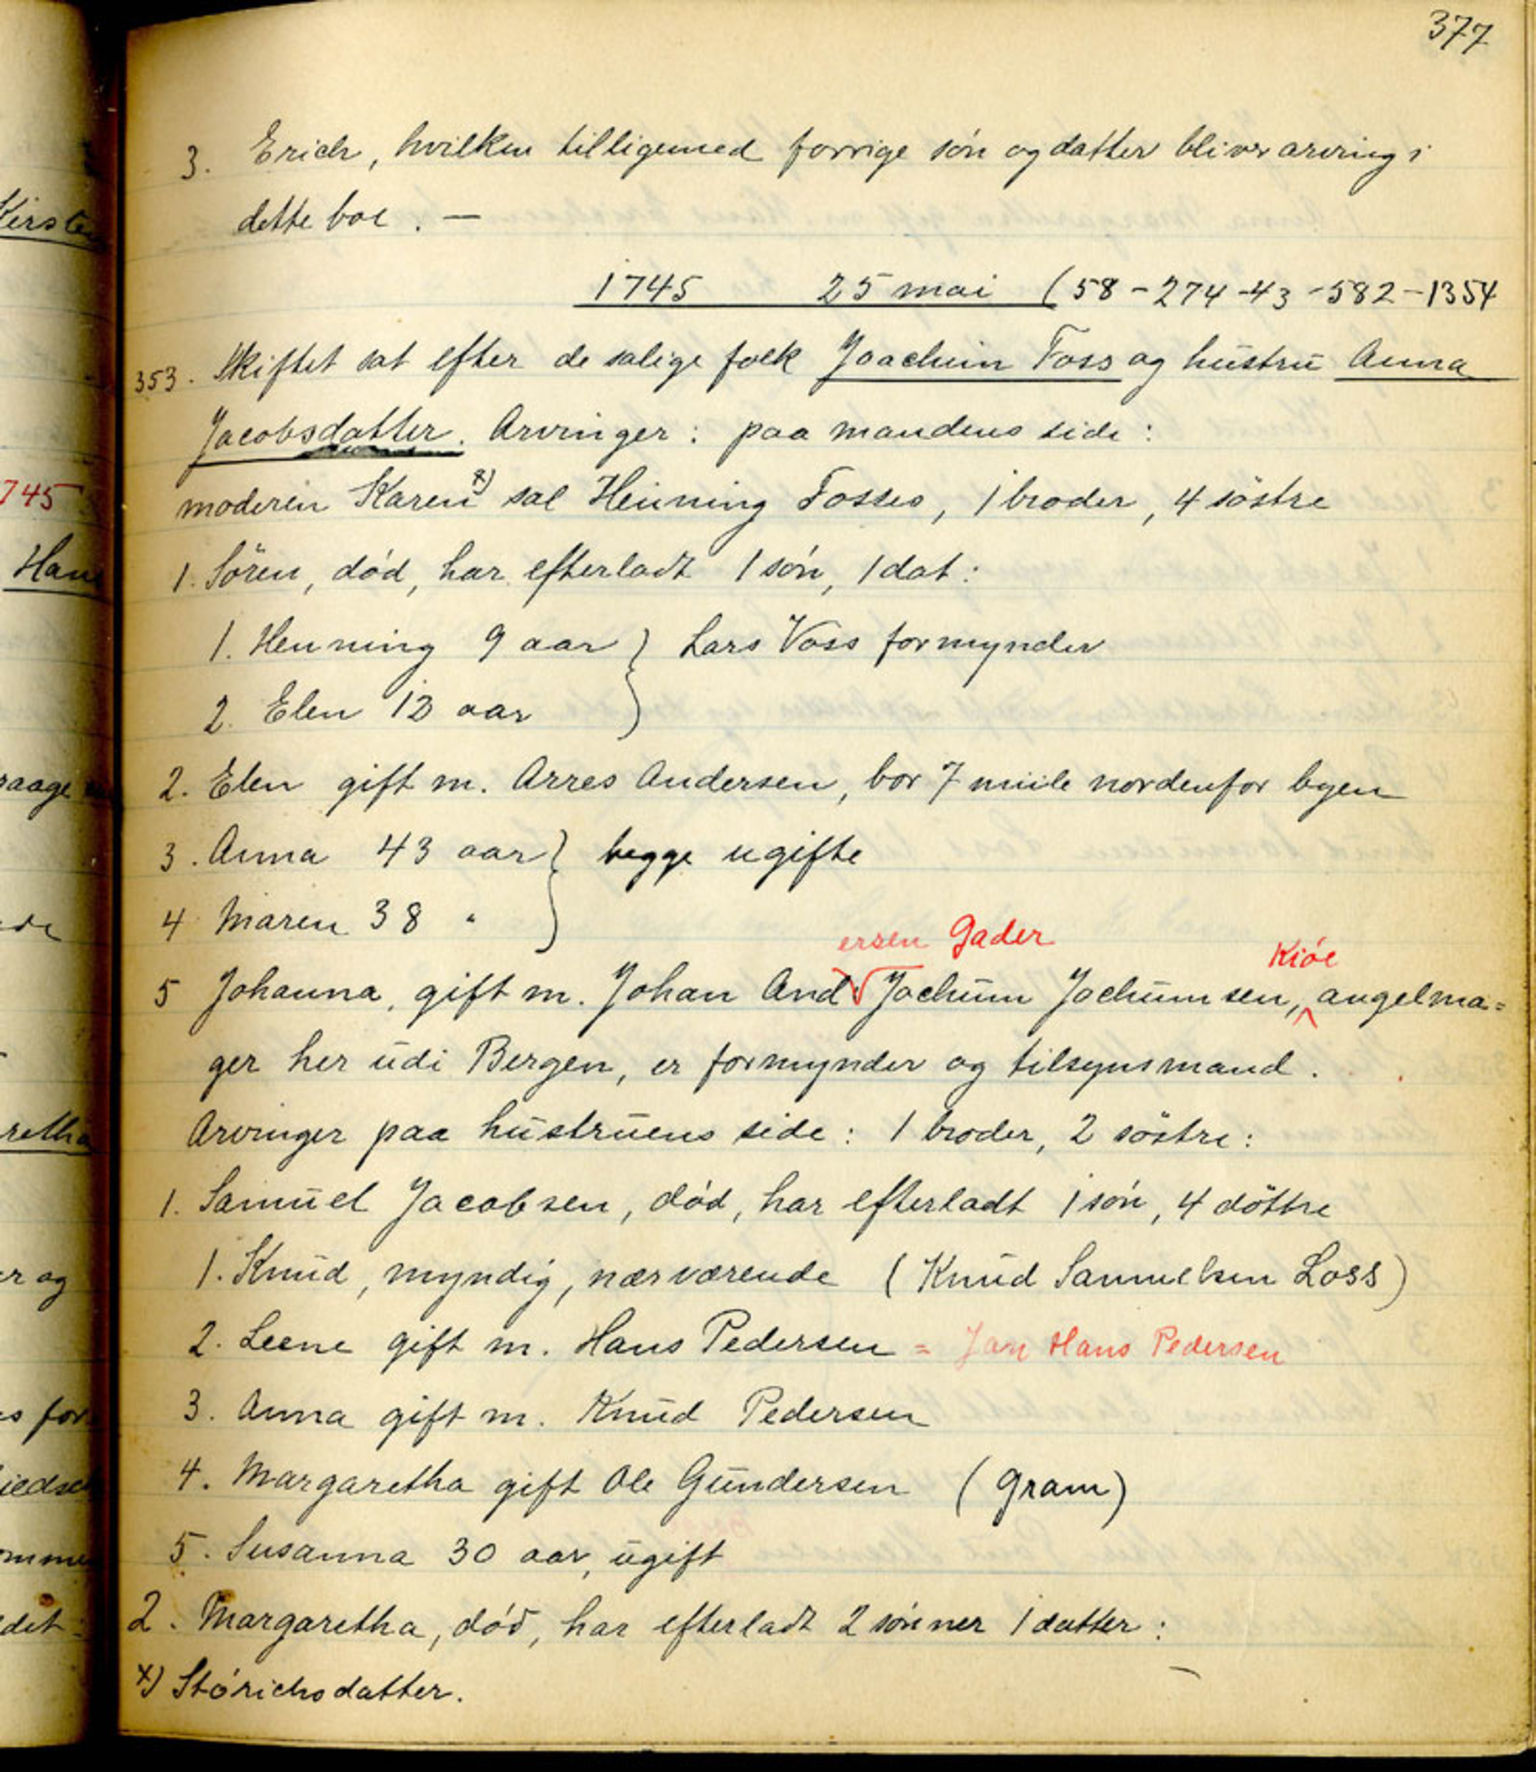 377
3. Erich, hvilken tilligemed forrige søn og datter bliver arving i
dette boe. —
1745 25 mai (58-274-43-582-1354
353. Skiftet sat efter de salige folk Joachim Foss og hustru Anna
Jacobsdatter. Arvinger: paa mandens side:
moderen Karen x) sal Henning Fosses, 1 broder, 4 söstre
1. Sören, død, har efterladt 1 søn, 1 dat:
1. Henning 9 aar } Lars Voss formynder
2. Elen 12 aar
2. Elen gift m. Arres Andersen, bor 7 miile nordenfor byen
3. Anna 43 aar } begge ugifte
4 Maren 38 "
ersen Gader
Kiøe
5 Johanna, gift m. Johan And Jochum Jochumsen, angelma=
ger her udi Bergen, er formynder og tilsynsmand.
Arvinger paa hustruens side: 1 broder, 2 söstre:
1. Samuel Jacobsen, død, har efterladt 1 søn, 4 döttre
1. Knud, myndig, nærværende (Knud Samuelsen Loss)
2. Leene gift m. Hans Pedersen = Jan Hans Pedersen
3. Anna gift m. Knud Pedersen
4. Margaretha gift Ole Gundersen (Gram)
5. Susanna 30 aar, ugift
2. Margaretha, död, har efterladt 2 sönner 1 datter:
x) Störichsdatter.
Kirste
745
Han
raage
de
retha
er og
s for
det: